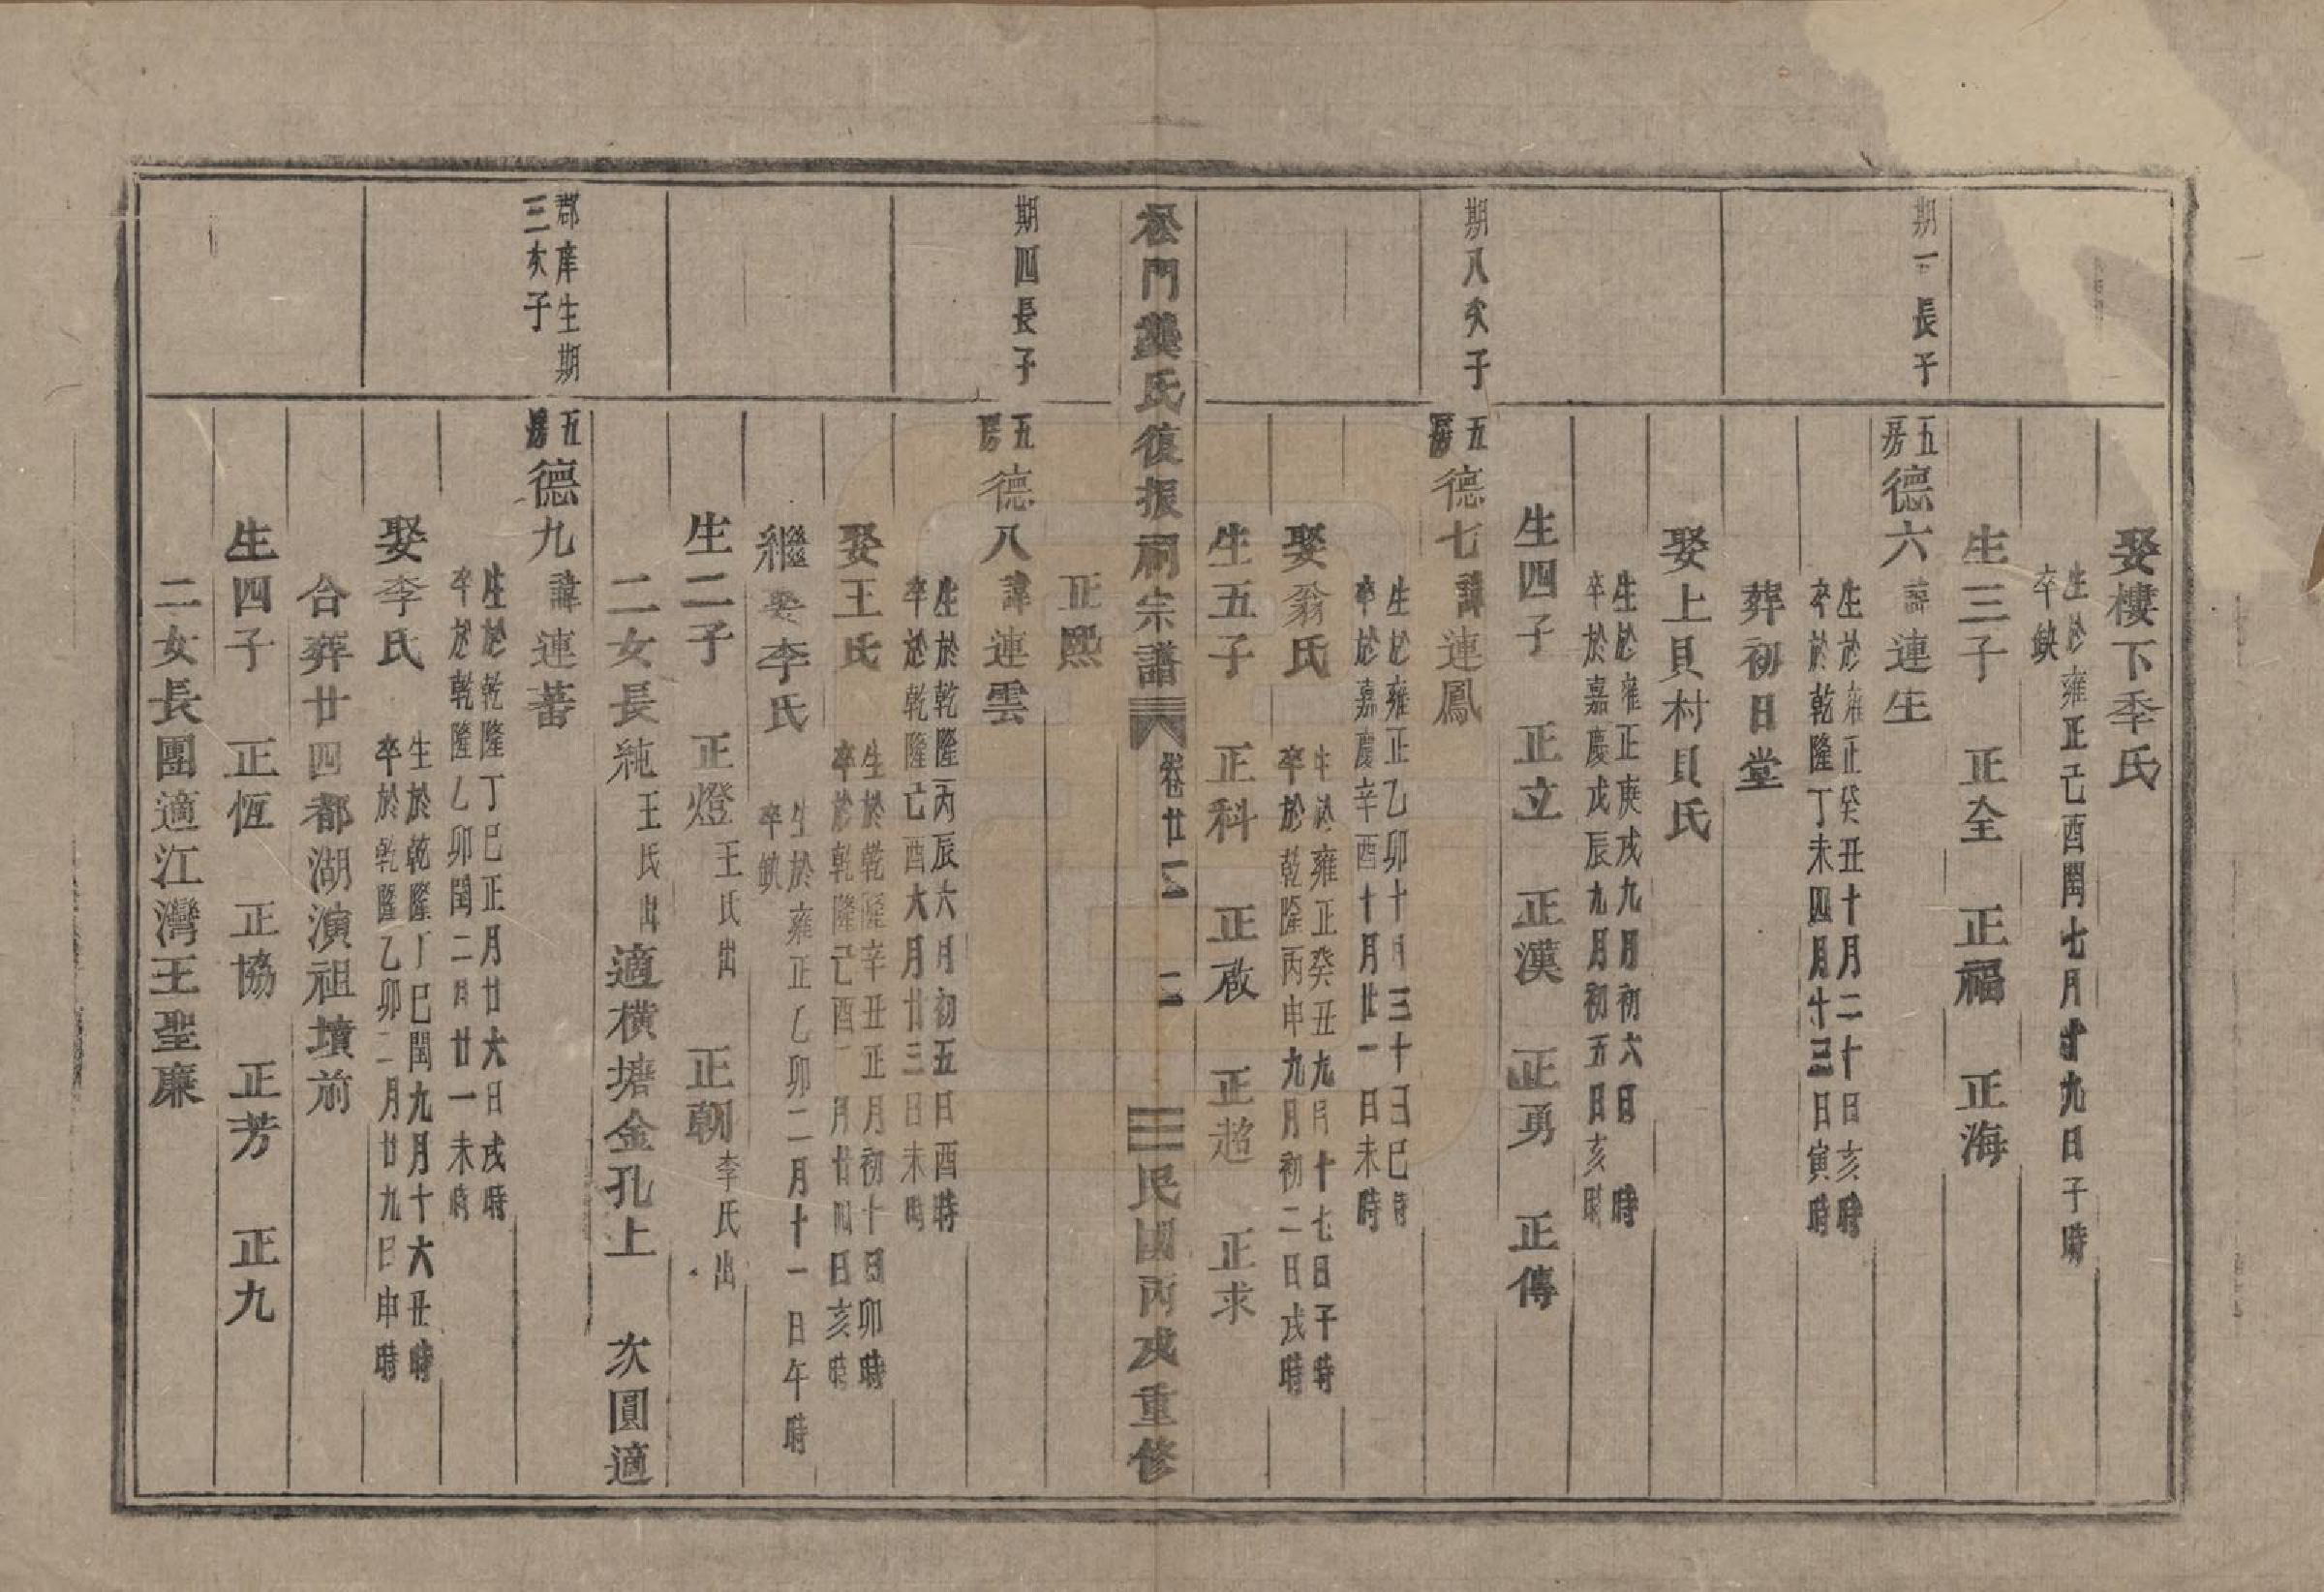 娶樓下季氏
生於雍正己酉閏七月十九日子時
卒缺
生三子 正全 正福 正海
期一長子
五房德六諱連生
生於雍正癸丑十月二十日亥時
卒於乾隆丁未四月十三日寅時
葬初日堂
娶上貝村貝氏
生於雍正庚戌九月初六日 時
卒於嘉慶戊辰九月初五日亥時
生四子 正立 正漢 正勇 正傳
期八次子
五房德七諱連鳳
生於雍正乙卯十月三十日巳時
卒於嘉慶辛酉十月廿一日未時
娶翁氏
生於雍正癸丑九月十七日子時
卒於乾隆丙申九月初二日戌時
生五子 正科 正啟 正超 正求
松門龔氏復振祠宗譜 卷廿二 二 民國丙戌重修
正熙
期四長子
五房德八諱連雲
生於乾隆丙辰六月初五日酉時
卒於乾隆己酉六月廿三日未時
娶王氏
生於乾隆辛丑正月初十日卯時
卒於乾隆己酉 月廿四日亥時
繼娶李氏
生於雍正乙卯二月十一日午時
卒缺
生二子 正燈王氏出 正朝李氏出
二女長純王氏出適橫塘金孔上 次圓適
郡庠生期三次子
五房德九諱連蕃
生於乾隆丁巳正月廿六日戌時
卒於乾隆乙卯閏二月廿一未時
娶李氏
生於乾隆丁巳閏九月十六丑時
卒於乾隆乙卯二月廿九日申時
合葬廿四都湖演祖墳前
生四子 正恆 正協 正芳 正九
二女長團適江灣王聖廉